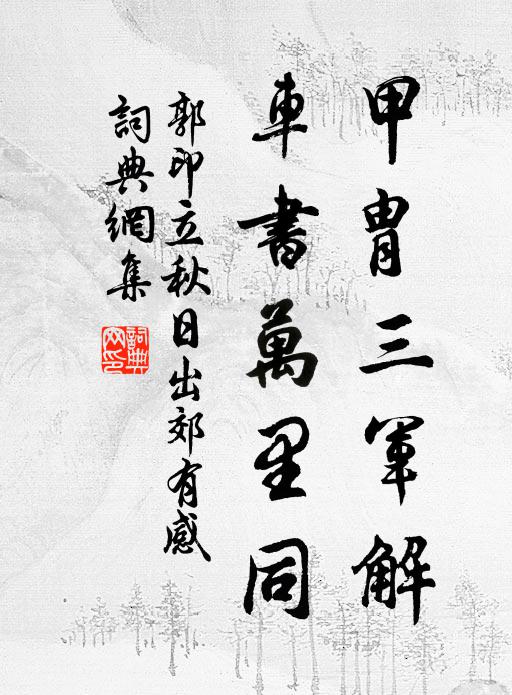 甲胄三軍解
車書萬里同
郭印立秋日出郊有感
詞典網集
詞典
网印